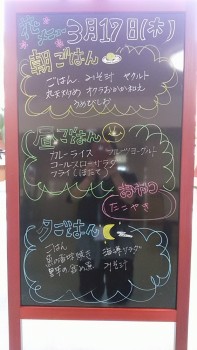 3月17日(木)
朝ごはん
ごはん、みそ汁 ヤクルト
オクラおかか和え
うめびしお
昼ごはん
カレーライス フルーツヨーグルト
コールスローサラダ
フライ(ほたて)
おやつ
たこやき
夕ごはん
ごはん 海藻サラダ
みそ汁